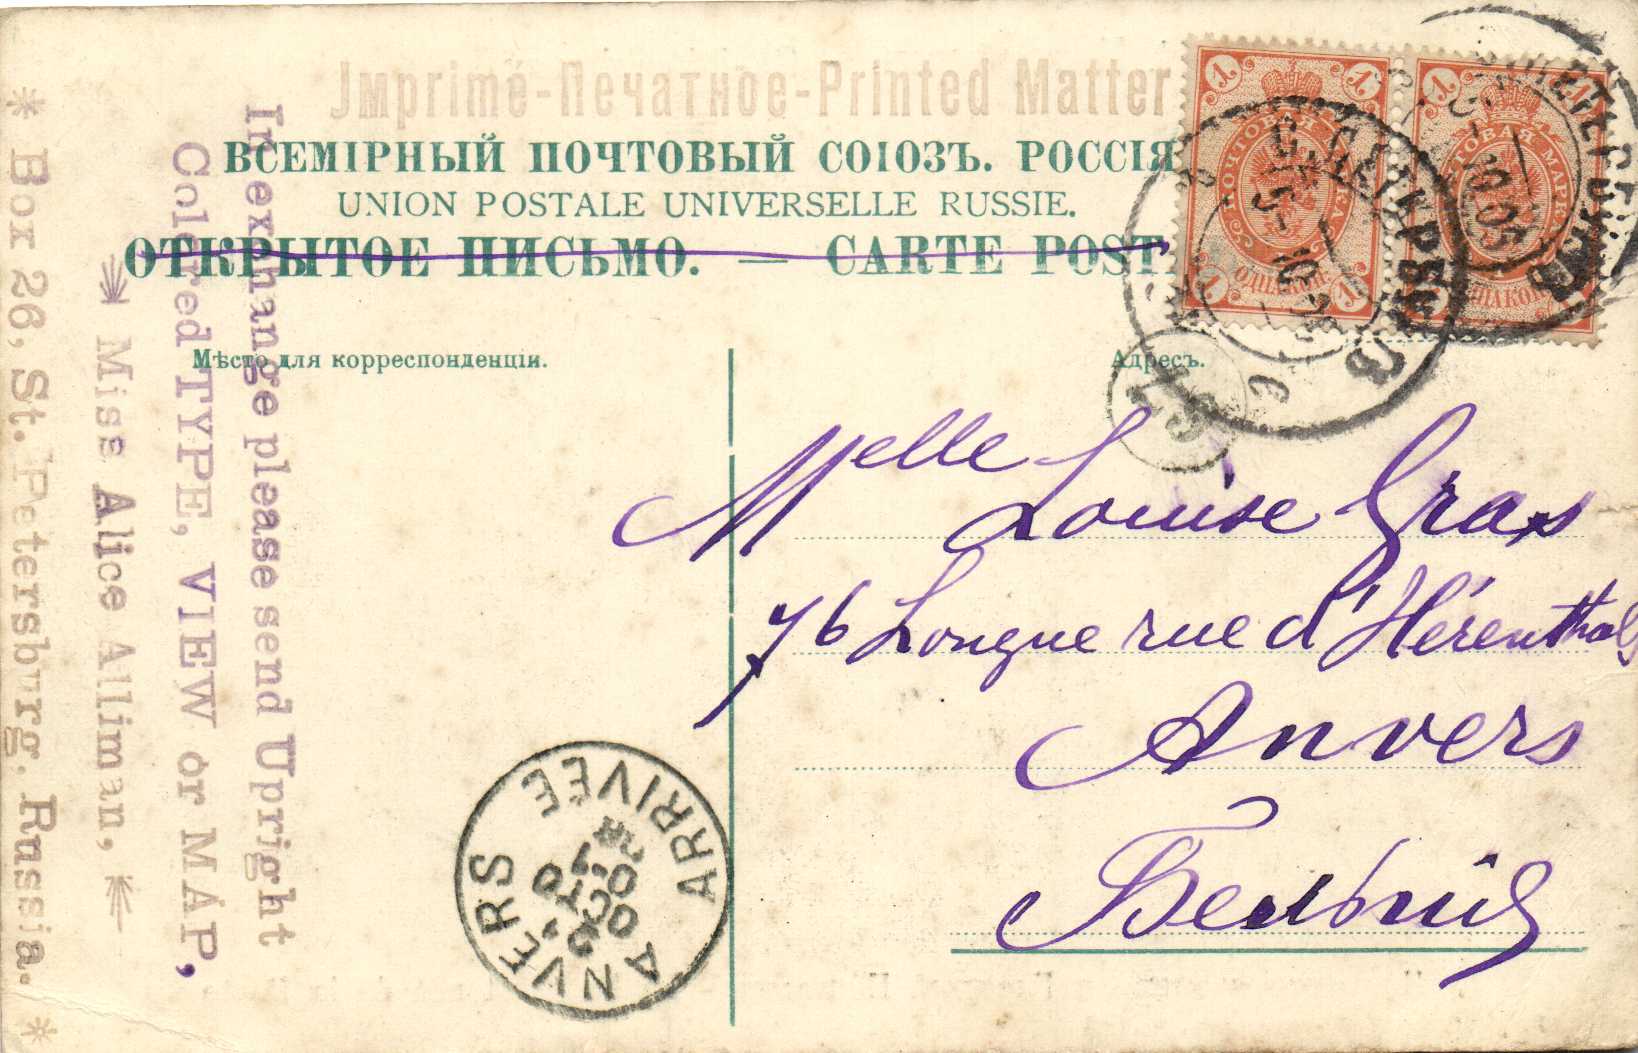 Imprimé-Печатное-Printed Matter
ВСЕМІРНЫЙ ПОЧТОВЫЙ СОЮЗЪ. РОССІЯ
UNION POSTALE UNIVERSELLE RUSSIE.
ОТКРЫТОЕ ПИСЬМО. — CARTE POST
Мѣсто для корреспонденціи.
Адресъ.
Melle Louise Gras
76 Longue rue d'Hérenthals
Anvers
Бельгія
In exchange please send Upright
Colored TYPE, VIEW or MAP,
Miss Alice Alliman,
* Box 26, St. Petersburg. Russia. *
ANVERS
ARRIVÉE
OCTO
С.ПЕТЕРБУРГ
5-10.05
ПОЧТОВАЯ МАРКА
1
1